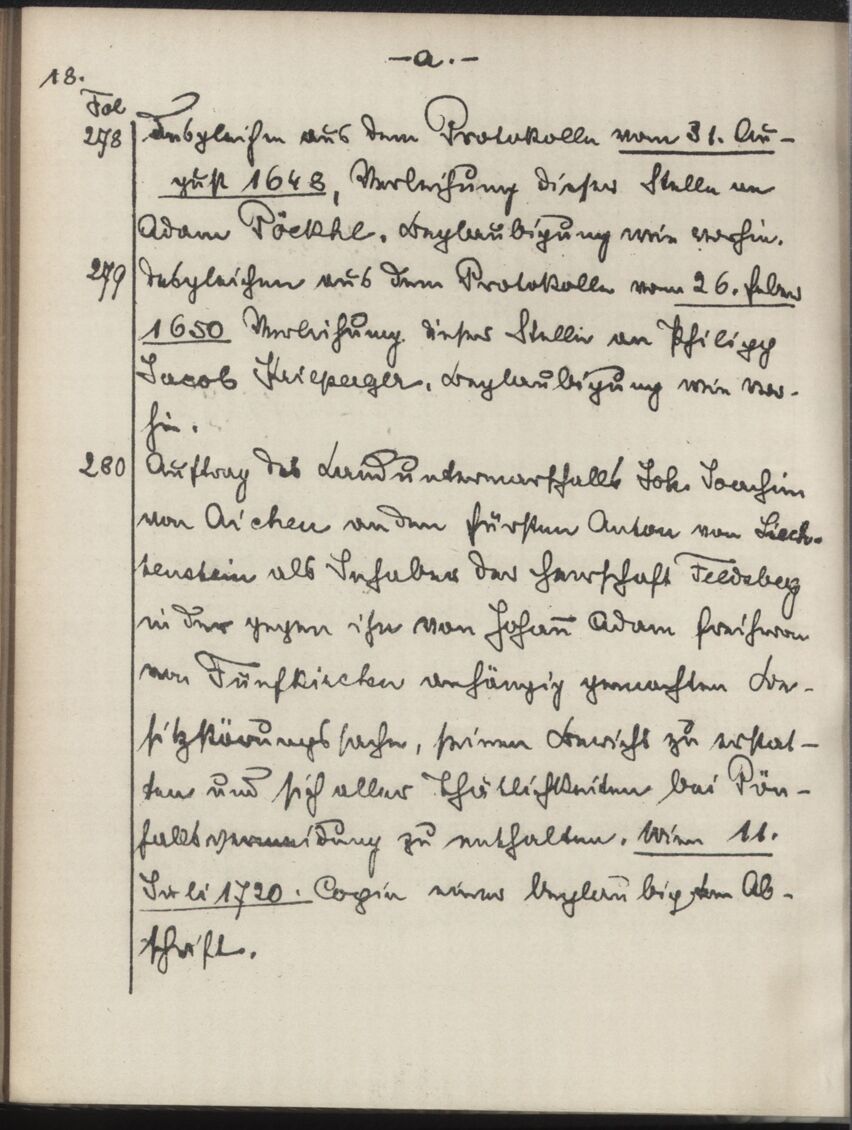 – a. –
18.
Fol
278 Desgleichen aus dem Protokolle vom 31. Au-
gust 1648, Verleihung dieser Stelle an
Adam Pöckhl. Beglaubigung wie vorhin.
279 Desgleichen aus dem Protokolle vom 26. Feber
1650 Verleihung dieser Stelle an Philipp
Jacob. Beglaubigung wie vor-
hin.
280 Auftrag des Landuntermarschalls Joh. Joachim
von Aichen an den Fürsten Anton von Liech-
tenstein als Inhaber der Herrschaft Feldsberg
in der gegen ihn von Johan̄ Adam Freiherrn
von Fünfkirchen anhängig gemachten Be-
sitzstörungssache, seinen Bericht zu erstat-
ten und sich aller Thätlichkeiten bei Pön-
fallsvermeidung zu enthalten. Wien 11.
Juli 1720. Copie einer beglaubigten Ab-
schrift.